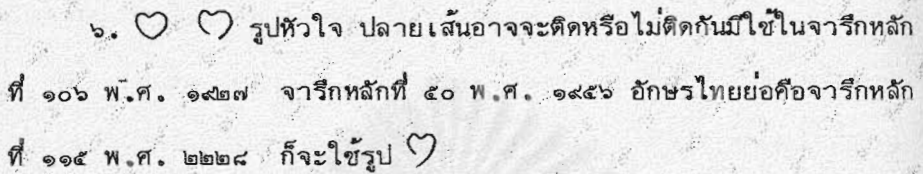 ๖. ♡ ♡ รูปหัวใจ ปลายเส้นอาจจะติดหรือไม่ติดกันมีใช้ในจารึกหลัก
ที่ ๑๐๖ พ.ศ. ๑๙๒๗ จารึกหลักที่ ๕๐ พ.ศ. ๑๙๕๖ อักษรไทยย่อคือจารึกหลัก
ที่ ๑๑๕ พ.ศ. ๒๒๒๘ ก็จะใช้รูป ♡